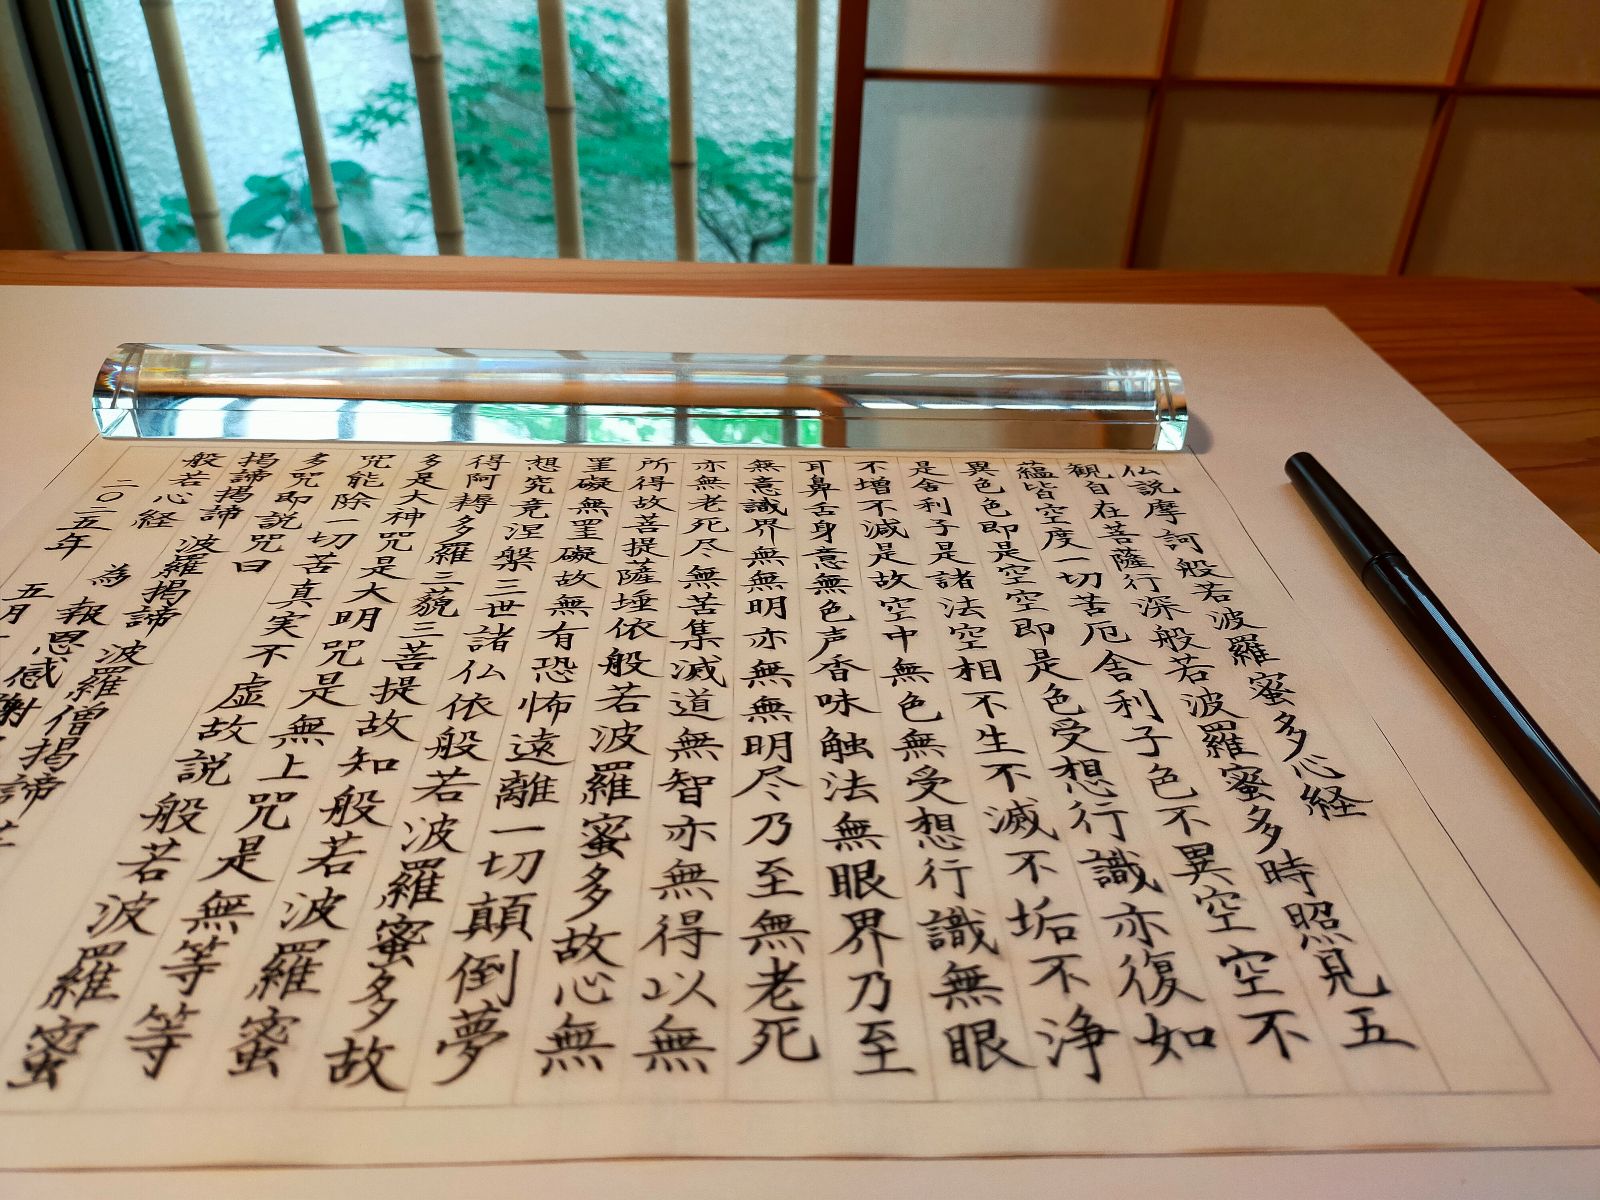 仏説摩訶般若波羅蜜多心経
観自在菩薩行深般若波羅蜜多時照見五
蘊皆空度一切苦厄舎利子色不異空空不
異色色即是空空即是色受想行識亦復如
是舎利子是諸法空相不生不滅不垢不浄
不増不減是故空中無色無受想行識無眼
耳鼻舌身意無色声香味触法無眼界乃至
無意識界無無明亦無無明尽乃至無老死
亦無老死尽無苦集滅道無智亦無得以無
所得故菩提薩埵依般若波羅蜜多故心無
罣礙無罣礙故無有恐怖遠離一切顛倒夢
想究竟涅槃三世諸仏依般若波羅蜜多故
得阿耨多羅三藐三菩提故知般若波羅蜜
多是大神咒是大明咒是無上咒是無等等
咒能除一切苦真実不虚故説般若波羅蜜
多咒即説咒曰
掲諦掲諦 波羅掲諦 波羅僧掲諦
般若心経 為 報恩感謝
二〇二五年 五月